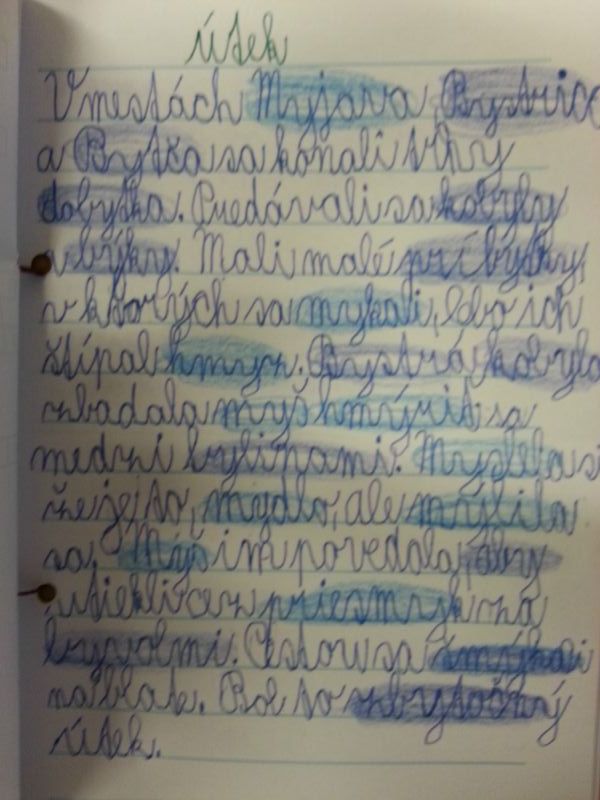 útek
V mestách Myjava, Bystrica
a Bytča sa konali trhy
dobytka. Predávali sa kobyly
a býky. Mali malé príbytky,
v ktorých sa mykali, lebo ich
štípal hmyz. Bystrá kobyla
zbadala myš hmýriť sa
medzi bylinami. Myslela si
že je to, mydlo, ale mýlila
sa. Myš im povedala, aby
utiekli cez priesmyk za
byvolmi. Cestou sa šmýkali
na blate. Bol to zbytočný
útek.